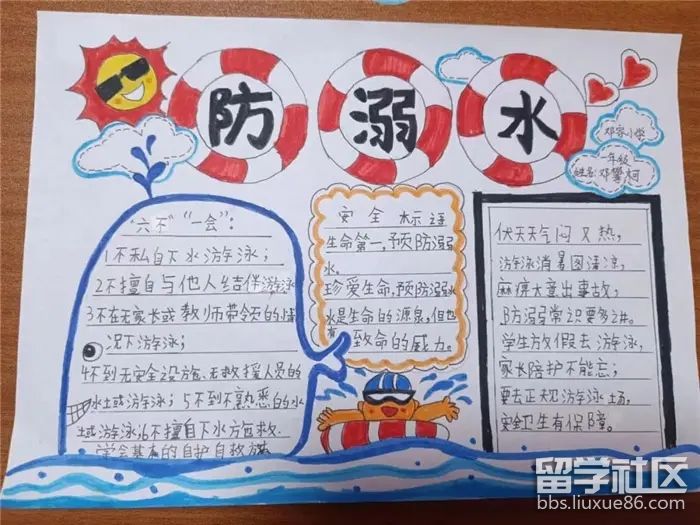 防溺水
邓家小学
一年级
姓名:邓攀柯
"六不""一会":
1不私自下水游泳;
2不擅自与他人结伴游泳
3不在无家长或教师带领的情
况下游泳;
4不到无安全设施、无救援人员的
水域游泳;5不到不熟悉的水
域游泳;6不擅自下水施救.
学会基本的自护自救方法
安全标语
生命第一,预防溺
水.
珍爱生命,预防溺水
水是生命的源泉,但也
有致命的威力.
伏天天气闷又热,
游泳消暑图清凉,
麻痹大意出事故,
防溺常识要多讲。
学生放假去游泳,
家长陪护不能忘;
要去正规游泳场,
安全卫生有保障。
留学社区
bbs.liuxue86.com